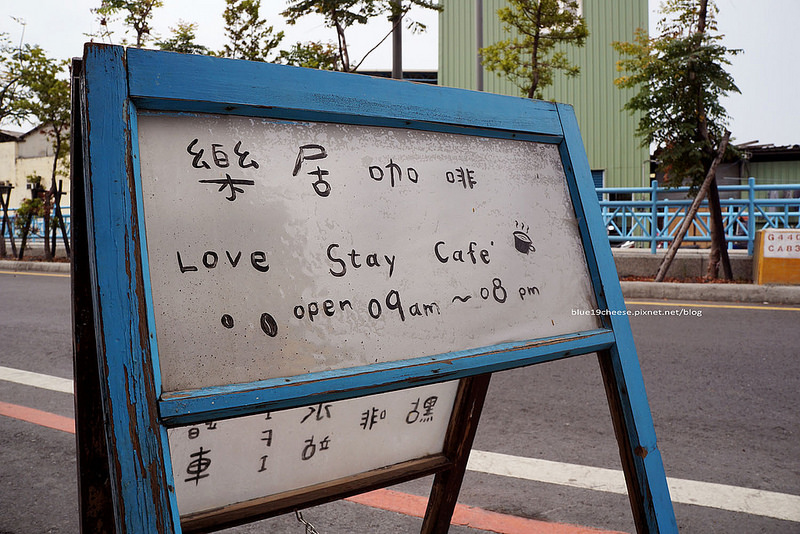 樂居咖啡
Love Stay Café
open 09am ~ 08 pm
blue19cheese.pixnet.net/blog
G440
CA83
車